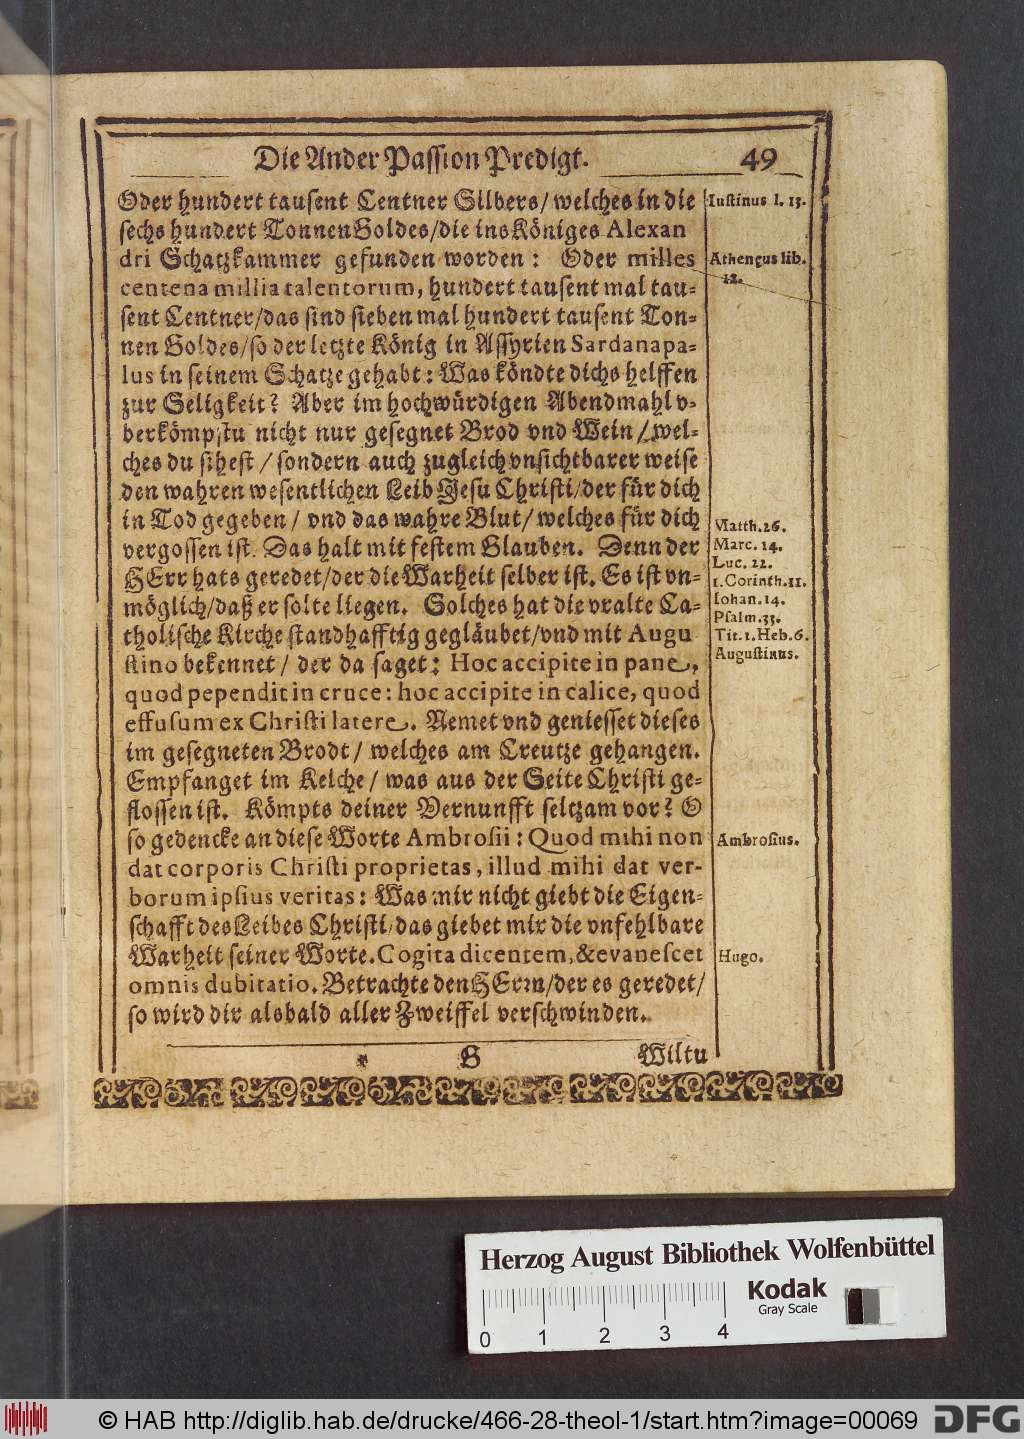 Die Ander Passion Predigt. 49
Oder hundert tausent Centner Silbers/ welches in die
sechs hundert Tonnen Goldes/die ins Königes Alexan
dri Schatzkammer gefunden worden: Oder milles
centena millia talentorum, hundert tausent mal tau-
sent Centner/das sind sieben mal hundert tausent Ton-
nen Goldes/so der letzte König in Assyrien Sardanapa-
lus in seinem Schatze gehabt: Was köndte dichs helffen
zur Seligkeit? Aber im hochwürdigen Abendmahl v-
berkömpstu nicht nur gesegnet Brod vnd Wein/ wel-
ches du sihest/ sondern auch zugleich vnsichtbarer weise
den wahren wesentlichen Leib Jesu Christi/der für dich
in Tod gegeben/ vnd das wahre Blut/ welches für dich
vergossen ist. Das halt mit festem Glauben. Denn der
HErr hats geredet/der die Warheit selber ist. Es ist vn-
möglich/daß er solte liegen. Solches hat die vralte Ca-
tholische Kirche standhafftig gegläubet/vnd mit Augu
stino bekennet/ der da saget: Hoc accipite in pane,
quod pependit in cruce: hoc accipite in calice, quod
effusum ex Christi latere. Nemet vnd geniesset dieses
im gesegneten Brodt/ welches am Creutze gehangen.
Empfanget im Kelche/ was aus der Seite Christi ge-
flossen ist. Kömpts deiner Vernunfft seltzam vor? O
so gedencke an diese Worte Ambrosii: Quod mihi non
dat corporis Christi proprietas, illud mihi dat ver-
borum ipsius veritas: Was mir nicht giebt die Eigen-
schafft des Leibes Christi/das giebet mir die vnfehlbare
Warheit seiner Worte. Cogita dicentem, & evanescet
omnis dubitatio. Betrachte den HErrn/der es geredet/
so wird dir alsbald aller Zweiffel verschwinden.
G Wiltu
Iustinus l. 13.
Athenęus lib.
12.
Matth. 26.
Marc. 14.
Luc. 22.
1. Corinth. 11.
Iohan. 14.
Psalm. 33.
Tit. 1. Heb. 6.
Augustinus.
Ambrosius.
Hugo.
Herzog August Bibliothek Wolfenbüttel
Kodak
Gray Scale
0 1 2 3 4
© HAB http://diglib.hab.de/drucke/466-28-theol-1/start.htm?image=00069
DFG